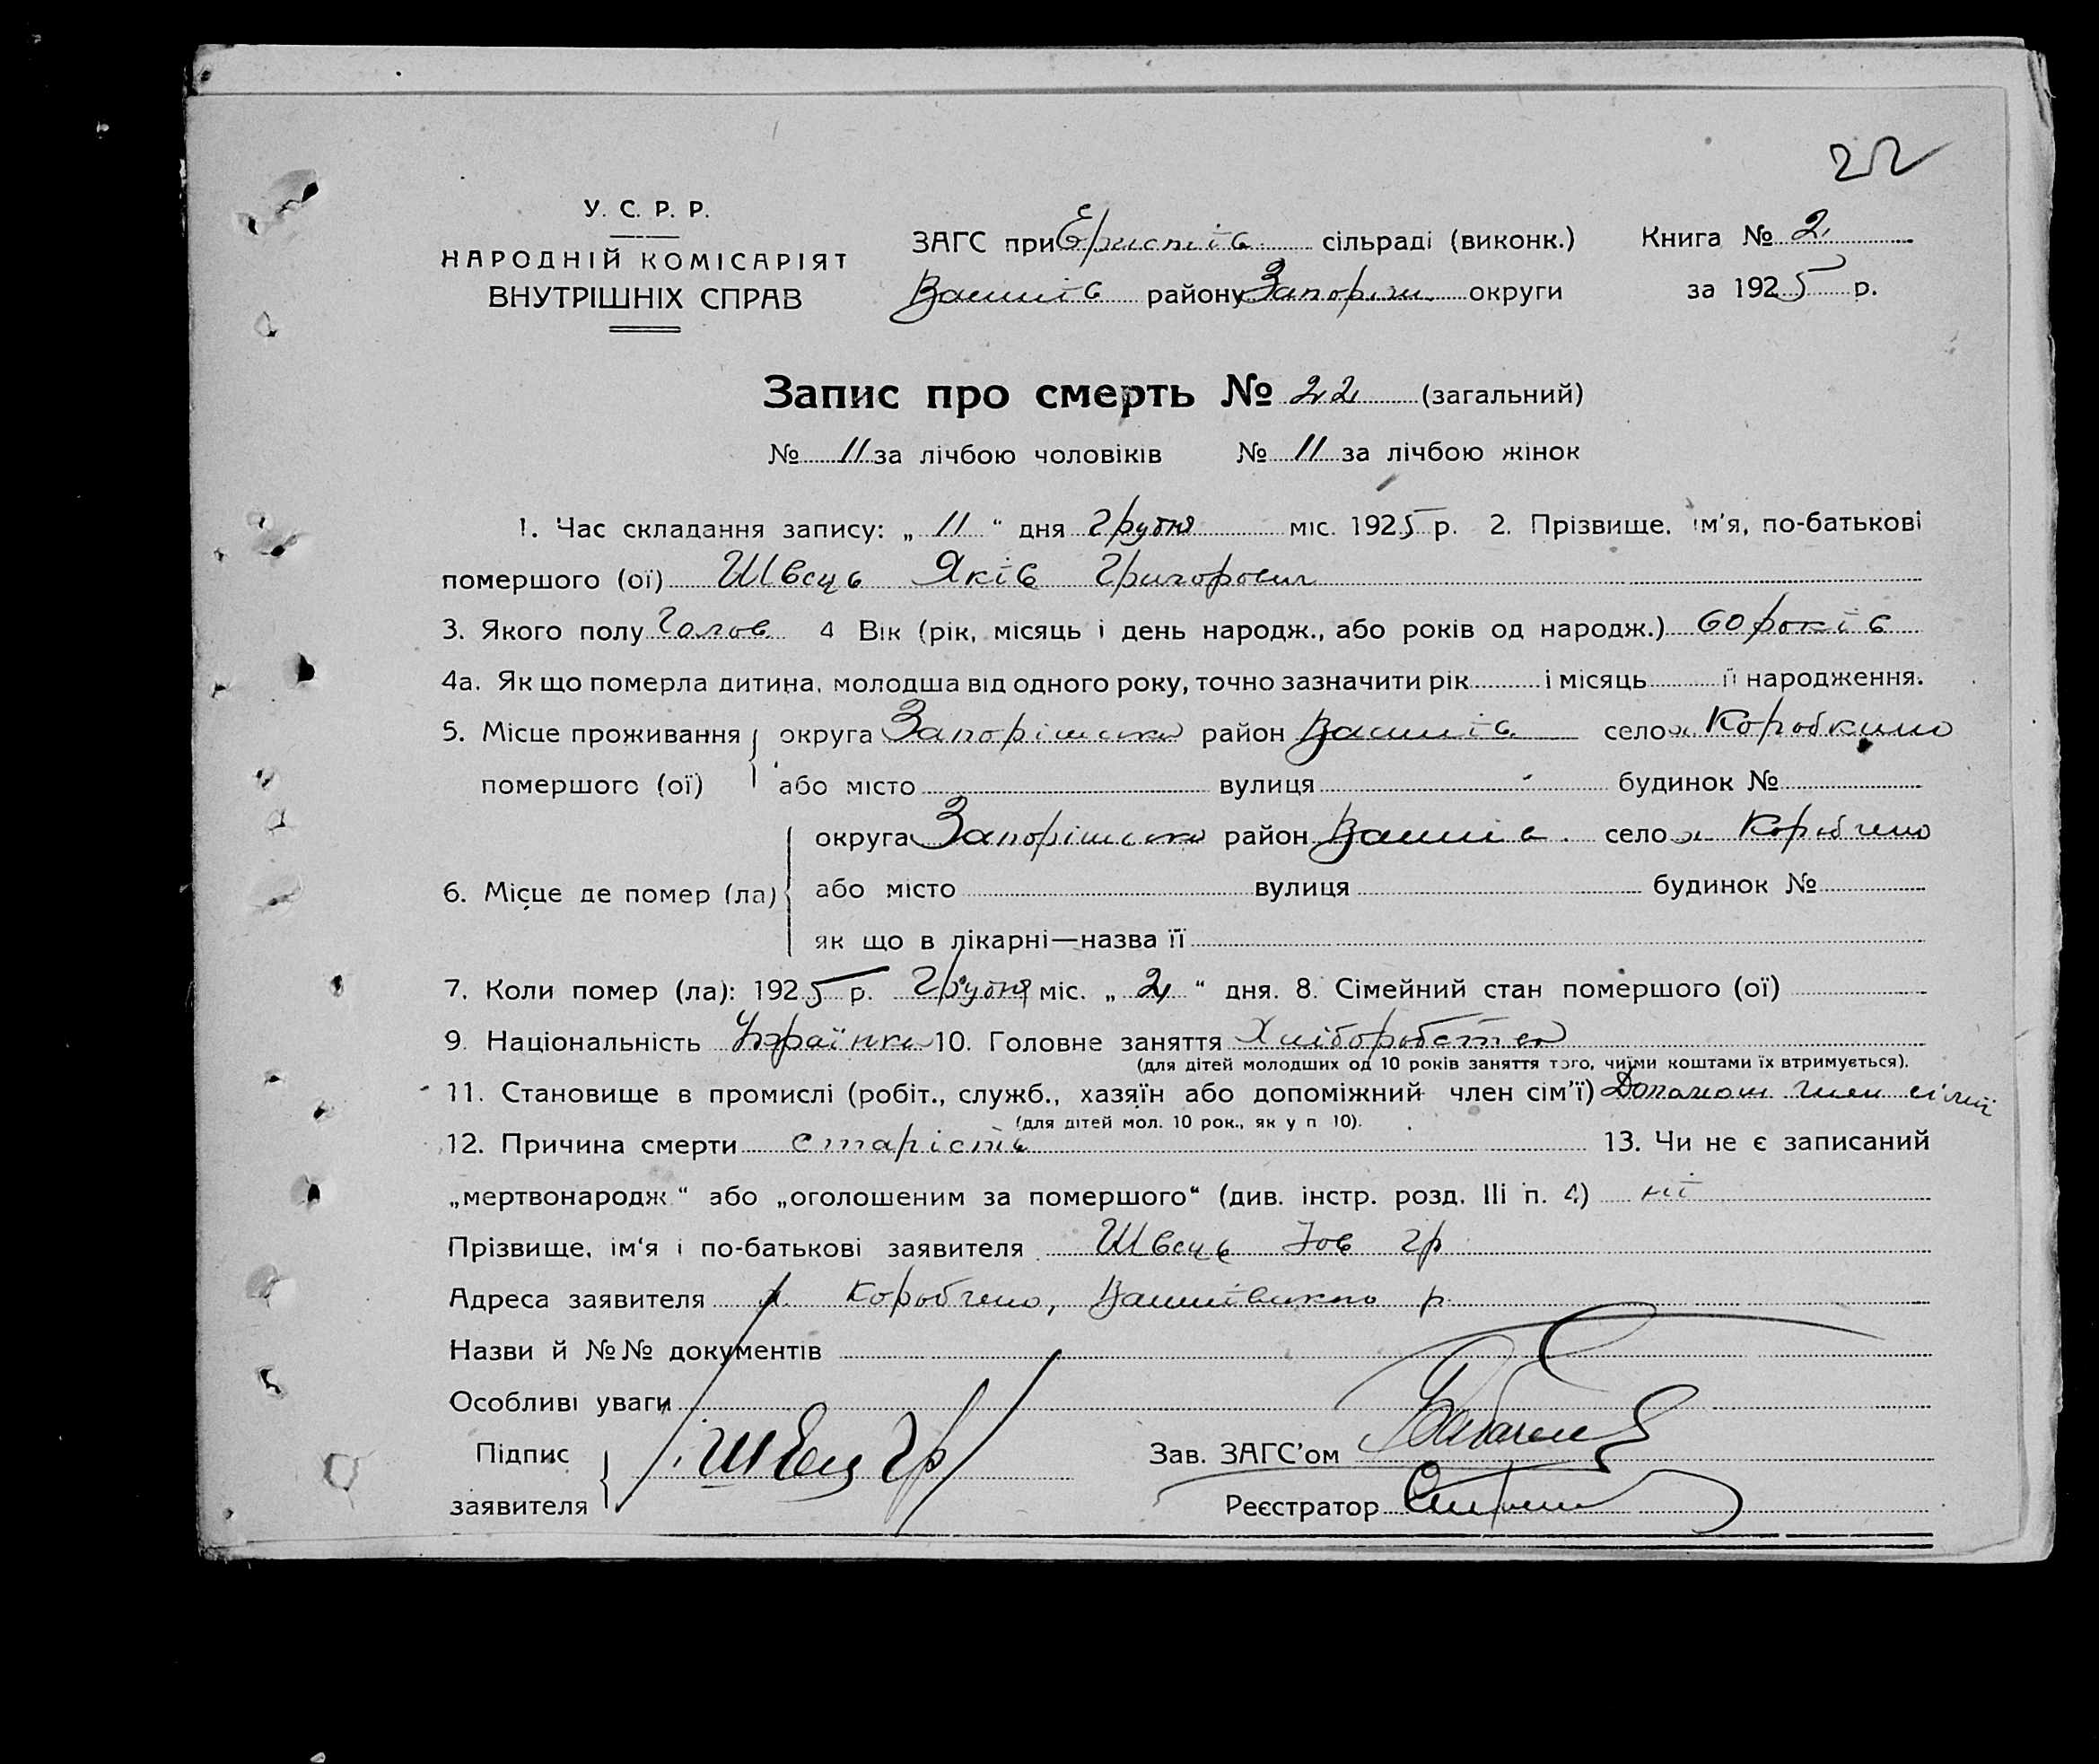 22
У. С. Р. Р.
НАРОДНІЙ КОМІСАРІЯТ
ВНУТРІШНІХ СПРАВ
ЗАГС при Єристів сільраді (виконк.) Книга № 2
району Запоріж округи за 1925 р.
Запис про смерть № 22 (загальний)
№ 11 за лічбою чоловіків № 11 за лічбою жінок
1. Час складання запису: „ 11 “ дня Грудня міс. 1925 р. 2. Прізвище, ім'я, по-батькові
помершого (ої) Швець Яків Григорович
3. Якого полу Чолов 4 Вік (рік, місяць і день народж., або років од народж.) 60 років
4а. Як що померла дитина, молодша від одного року, точно зазначити рік і місяць її народження.
5. Місце проживання округа Запоріжська район село
помершого (ої) або місто вулиця будинок №
округа Запоріжська район село х Коробчено
6. Місце де помер (ла) або місто вулиця будинок №
як що в лікарні—назва її
7. Коли помер (ла): 1925 р. Грудня міс. „ 2 “ дня. 8. Сімейний стан помершого (ої)
9. Національність 10. Головне заняття
(для дітей молодших од 10 років заняття того, чиїми коштами їх втримується).
11. Становище в промислі (робіт., служб., хазяїн або допоміжний член сім'ї) Допамош член сімї
(для дітей мол. 10 рок., як у п 10).
12. Причина смерти старість 13. Чи не є записаний
„мертвонародж.“ або „оголошеним за помершого“ (див. інстр. розд. III п. 4) ні
Прізвище, ім'я і по-батькові заявителя Швець Іов гр
Адреса заявителя х. Коробчено, р
Назви й №№ документів
Особливі уваги
Підпис
заявителя Швець Гр
Зав. ЗАГС'ом
Реєстратор